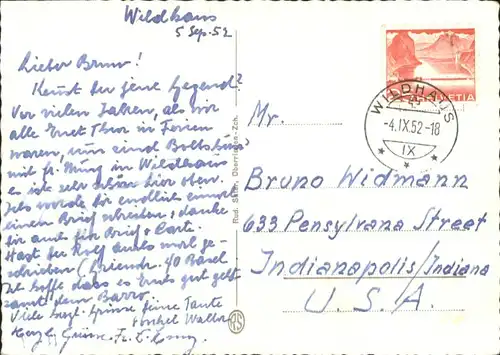 Wildhaus
5 Sep. 52
Lieber Bruno!
Kennst du jene Gegend?
Vor vielen Jahren, als wir
alle Ernst Thur in Ferien
waren, und
mit Fr. in Wildhaus
es ist sehr schön hier oben.
Ich werde Dir endlich einmal
einen Brief schreiben, & danke
Dir auch für Brief & Carte.
Hast der Rolf auch mal ge-
schrieben 40 Basel
Ich hoffe dass es Euch gut geht
samt dem
Viele herzl. Grüsse Deine Tante
Onkel Walter
Herzl. Grüsse Fr.
Rud. Suter, Oberrieden-Zch.
RS
HELVETIA
WILDHAUS
-4.IX.52-18
IX
Mr.
Bruno Widmann
633 Pensylvana Street
Indianapolis/Indiana
U.S.A.